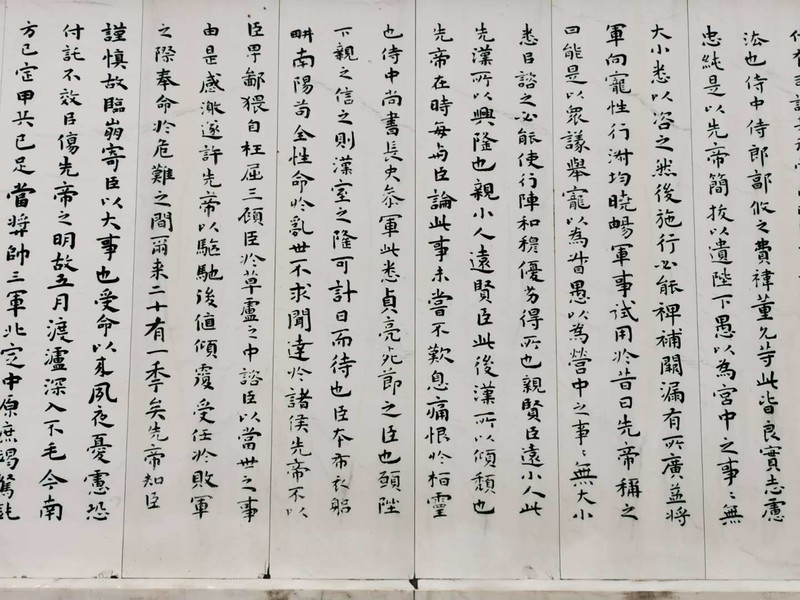 法也侍中侍郎郭攸之費禕董允等此皆良實志慮
忠純是以先帝簡拔以遺陛下愚以為宮中之事〻無
大小悉以咨之然後施行必能裨補闕漏有所廣益將
軍向寵性行淑均曉暢軍事試用於昔日先帝稱之
曰能是以衆議舉寵以為督愚以為營中之事〻無大小
悉以諮之必能使行陣和穆優劣得所也親賢臣遠小人此
先漢所以興隆也親小人遠賢臣此後漢所以傾頹也
先帝在時每與臣論此事未嘗不歎息痛恨於桓靈
也侍中尚書長史參軍此悉貞亮死節之臣也願陛
下親之信之則漢室之隆可計日而待也臣本布衣躬
耕南陽苟全性命於亂世不求聞達於諸侯先帝不以
臣卑鄙猥自枉屈三顧臣於草廬之中諮臣以當世之事
由是感激遂許先帝以驅馳後值傾覆受任於敗軍
之際奉命於危難之間爾来二十有一年矣先帝知臣
謹慎故臨崩寄臣以大事也受命以来夙夜憂慮恐
付託不效以傷先帝之明故五月渡瀘深入不毛今南
方已定甲兵已足當獎帥三軍北定中原庶竭駑鈍